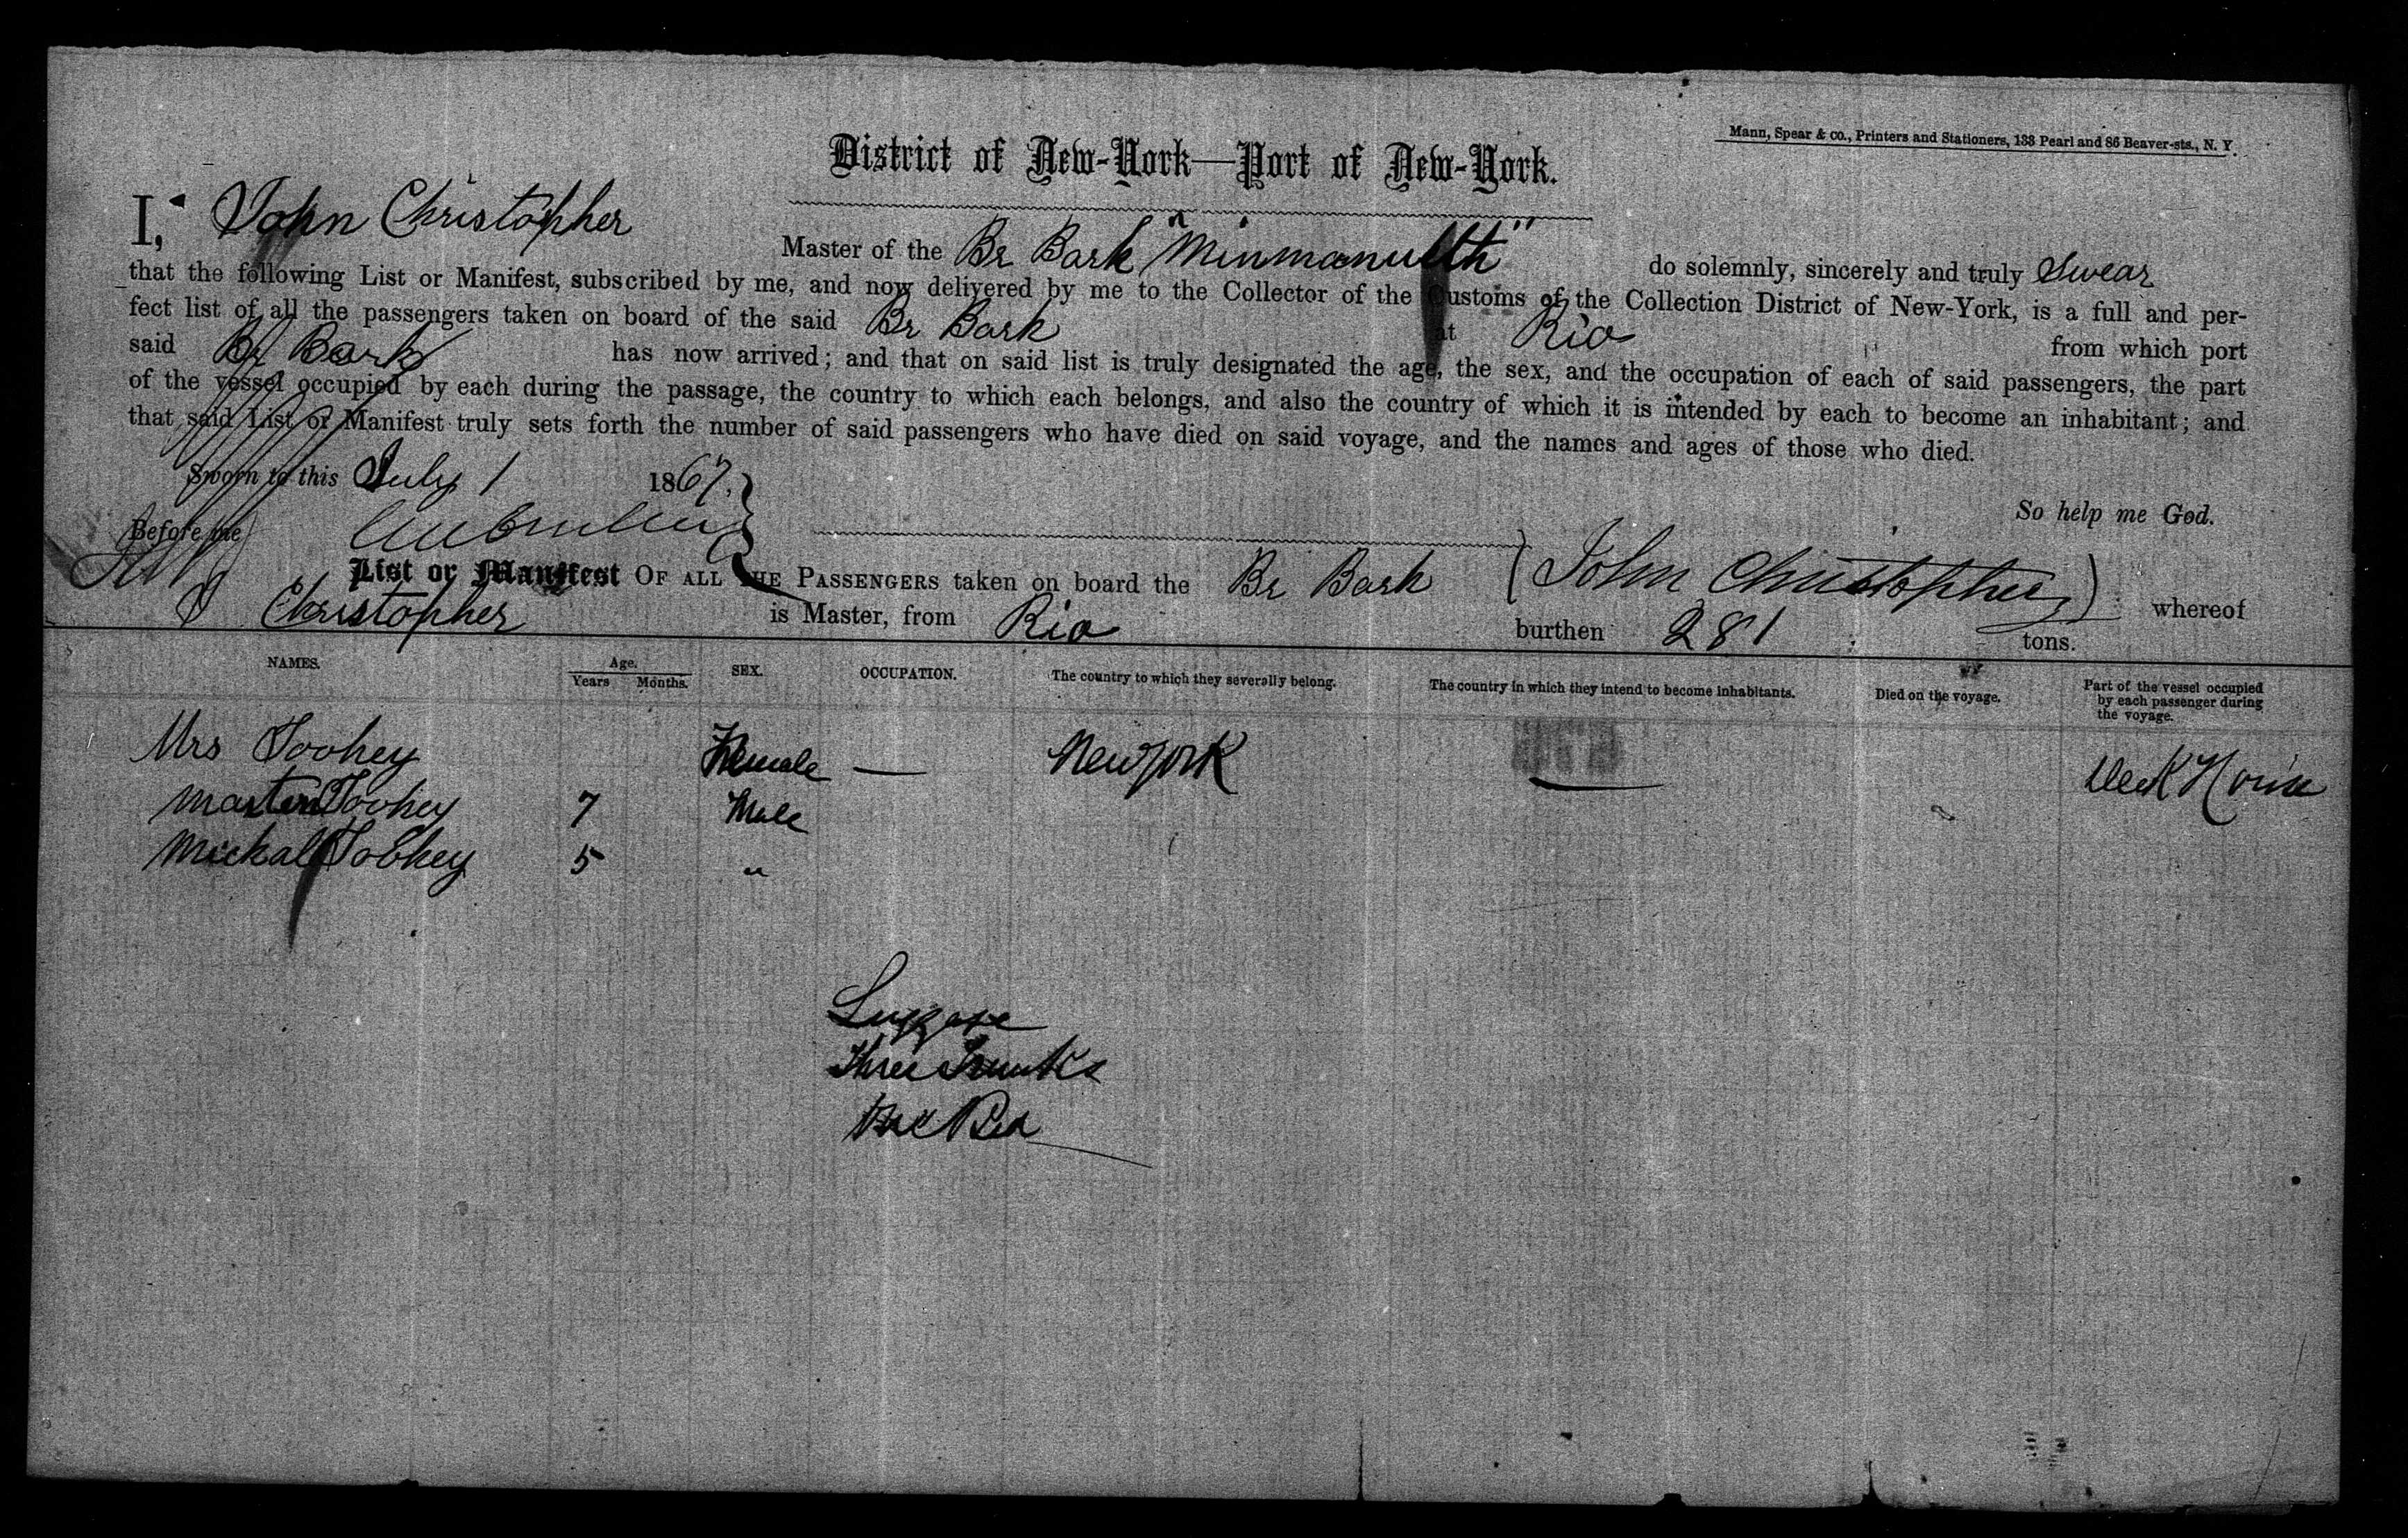 Mann, Spear & co., Printers and Stationers, 133 Pearl and 86 Beaver-sts., N. Y.
District of New-York—Port of New-York.
I, John Christopher Master of the Br Bark "Minmanueth" do solemnly, sincerely and truly Swear
that the following List or Manifest, subscribed by me, and now delivered by me to the Collector of the Customs of the Collection District of New-York, is a full and per-
fect list of all the passengers taken on board of the said Br Bark at Rio from which port
said Br Bark has now arrived; and that on said list is truly designated the age, the sex, and the occupation of each of said passengers, the part
of the vessel occupied by each during the passage, the country to which each belongs, and also the country of which it is intended by each to become an inhabitant; and
that said List or Manifest truly sets forth the number of said passengers who have died on said voyage, and the names and ages of those who died.
Sworn to this July 1 1867.
So help me God.
Before me
John Christopher
List or Manifest OF ALL THE PASSENGERS taken on board the Br Bark whereof
J Christopher is Master, from Rio burthen 281 tons.
NAMES. Age. Years Months. SEX. OCCUPATION. The country to which they severally belong. The country in which they intend to become inhabitants. Died on the voyage. Part of the vessel occupied by each passenger during the voyage.
Mrs Toohey Female — New york — Deck House
Marten Toohey 7 Male
Mickal Toohey 5 "
Luggage
Three Trunks
Bed